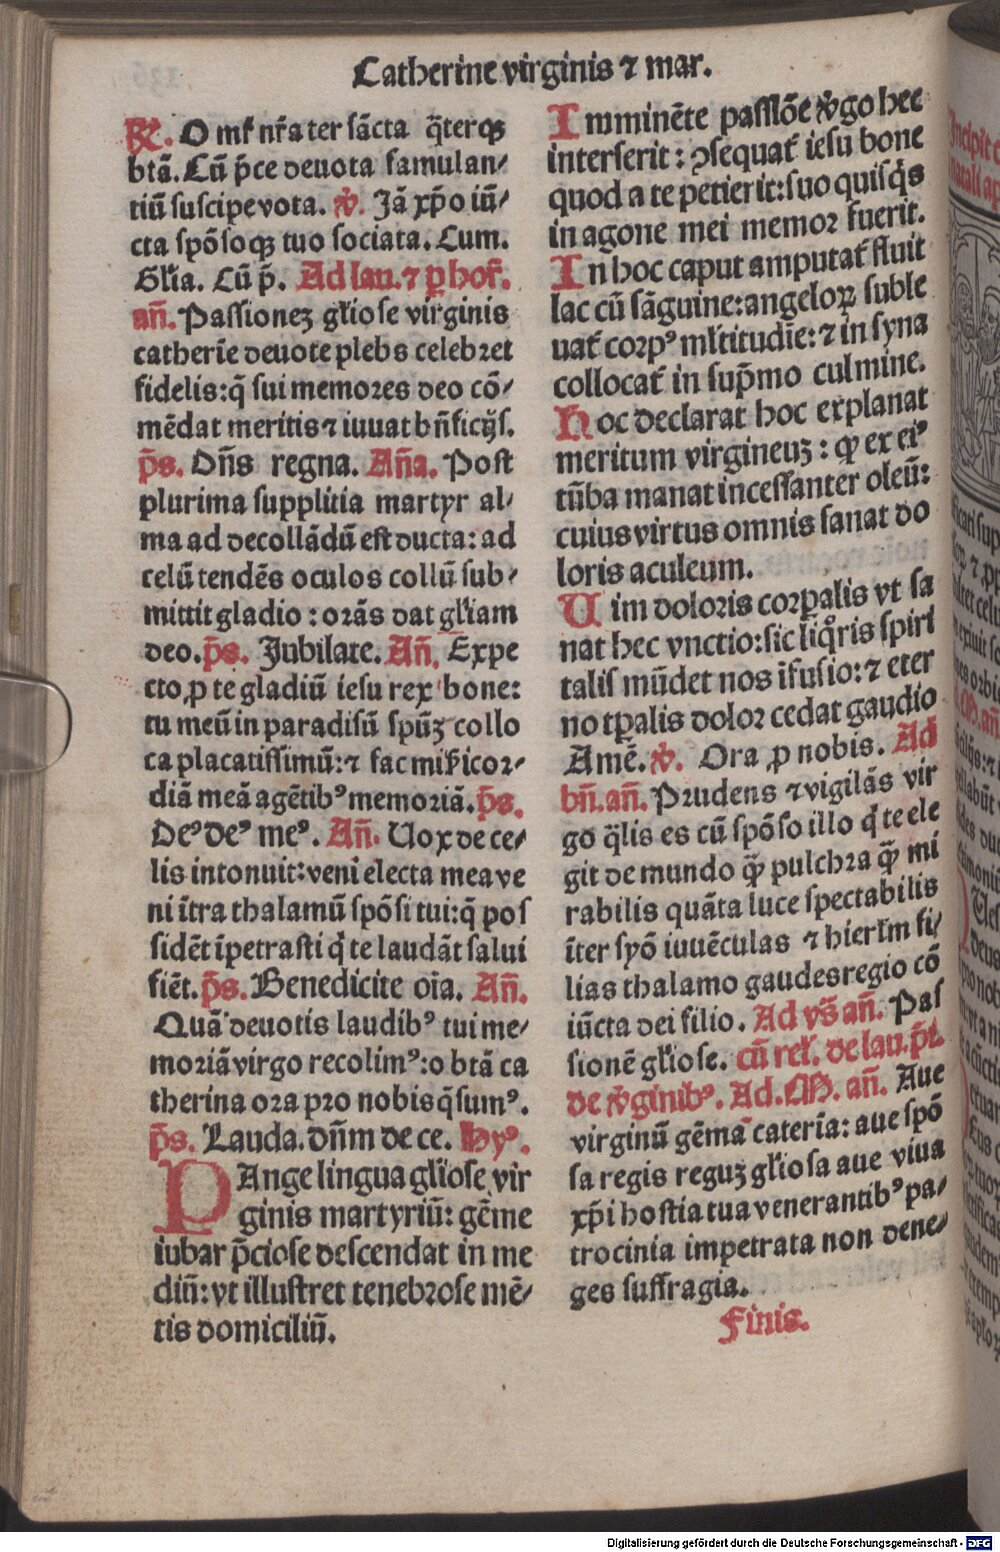 Catherine virginis ⁊ mar.
R̃. O mr̃ nr̃a ter sãcta q̃terqꝫ
btã. Cũ p̃ce deuota famulan/
tiũ suscipe vota. ṽ. Jã xp̃o iũ/
cta spõsoqꝫ tuo sociata. Cum.
Gl̃ia. Cũ p̃. Ad lau. ⁊ ꝑ hor̃.
añ. Passionez gl̃iose virginis
catherie deuote plebs celebret
fidelis: q̃ sui memores deo cõ/
mẽdat meritis ⁊ iuuat bñficijs.
p̃s. Dñs regna. Aña. Post
plurima supplitia martyr al/
ma ad decollãdũ est ducta: ad
celũ tendẽs oculos collũ sub/
mittit gladio: orãs dat gl̃iam
deo. p̃s. Jubilate. Añ. Expe
cto, ꝓ te gladiũ iesu rex bone:
tu meũ in paradisũ spũꝫ collo
ca placatissimũ: ⁊ fac mis̃icor/
diã meã agẽtibꝰ memoriã. p̃s.
Deꝰ deꝰ meꝰ. Añ. Uox de ce/
lis intonuit: veni electa mea ve
ni ĩtra thalamũ spõsi tui: q̃ pos
sidẽt ĩpetrasti q̇ te laudãt salui
fiẽt. p̃s. Benedicite oĩa. Añ.
Quã deuotis laudibꝰ tui me/
moriã virgo recolimꝰ: o btã ca
therina ora pro nobis q̃sumꝰ.
p̃s. Lauda. dñm de ce. Hyꝰ.
PAnge lingua gl̃iose vir
ginis martyriũ: gẽme
iubar p̃ciose descendat in me
diũ: vt illustret tenebrose mẽ/
tis domiciliũ.
Imminẽte passiõe ṽgo hec
interserit: ꝯsequat̃ iesu bone
quod a te petierit: suo quisq̇s
in agone mei memor fuerit.
In hoc caput amputat̃ fluit
lac cũ sãguine: angeloꝝ suble
uat̃ corpꝰ ml̃titudie: ⁊ in syna
collocat̃ in sup̃mo culmine.
Hoc declarat hoc explanat
meritum virgineuꝫ: ꝙ ex eiꝰ
tũba manat incessanter oleũ:
cuius virtus omnis sanat do
loris aculeum.
Uim doloris corꝑalis vt sa
nat hec vnctio: sic liq̊ris spiri
talis mũdet nos ĩfusio: ⁊ eter
no tꝑalis dolor cedat gaudio
Amẽ. ṽ. Ora ꝓ nobis. Ad
bñ. añ. Prudens ⁊ vigilãs vir
go q̃lis es cũ spõso illo q̇ te ele
git de mundo q̃ꝫ pulchra q̃ꝫ mi
rabilis quãta luce spectabilis
ĩter syõ iuuẽculas ⁊ hierl̃m fi/
lias thalamo gaudes regio cõ
iũcta dei filio. Ad vs̃ añ. Pas
sionẽ gl̃iose. cũ rel̃. de lau. p̃t.
de ṽginibꝰ. Ad. M. añ. Aue
virginũ gẽma cateria: aue spõ
sa regis reguꝫ gl̃iosa aue viua
xp̃i hostia tua venerantibꝰ pa/
trocinia impetrata non dene/
ges suffragia.
Finis.
Digitalisierung gefördert durch die Deutsche Forschungsgemeinschaft - DFG